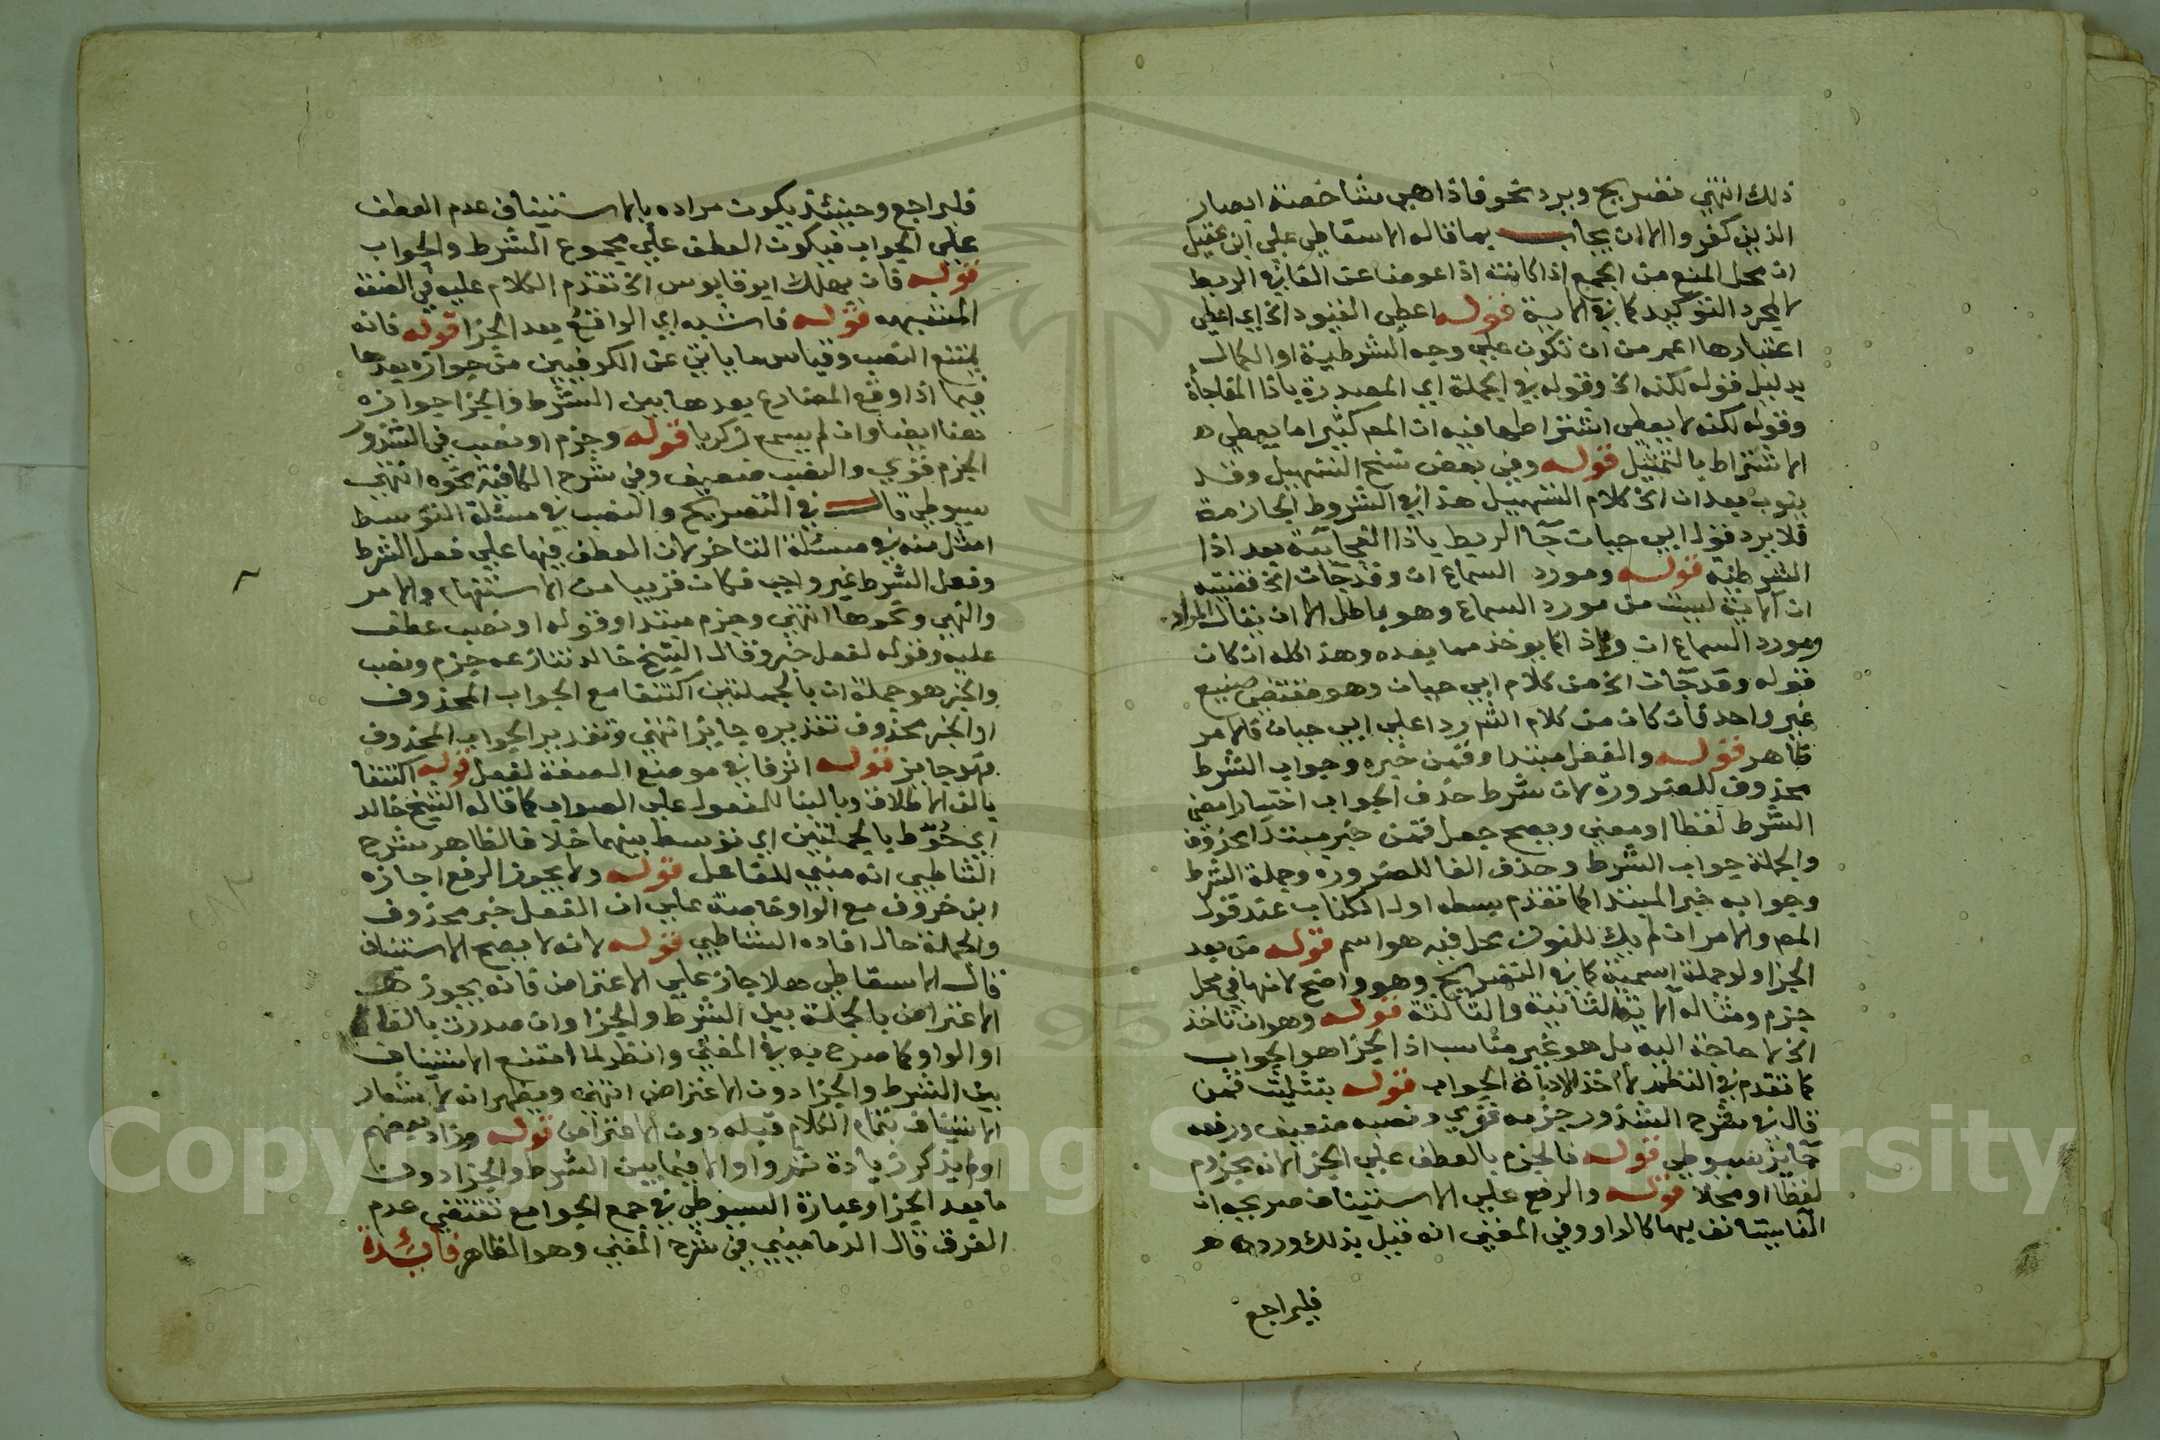 ذلك انتهي تصريح ويرد نحو فاذا هي شاخصة ابصار
الذين كفروا الا ان يجاب بما قاله الاسقاطي علي ابن عقيل
ان محل المنع من الجمع اذا كانت اذا عوضا عن الفا في الربط
لا لمجرد التوكيد كما في الاية قوله اعطي القيود الخ اي اعطي
اعتبارها اعم من ان تكون علي وجه الشرطية او الكمال
بدليل قوله لكنه الخ وقوله في الجملة اي المصدرة باذا المفاجأة
وقوله لكنه لا يعطي اشتراطها فيه ان المص كثيرا ما يعطي
الاشتراط بالتمثيل قوله وفي بعض نسخ التسهيل وقد
ينوب بعد ان الخ كلام التسهيل هذا في الشروط الجازمة
فلا يرد قول ابي حيان جآ الربط باذا الفجآئية بعد اذا
الشرطية قوله ومورد السماع ان وقد جآت الخ قضيته
ان الاية ليست من مورد السماع وهو باطل الا ان يقال المراد
ومورد السماع ان واذا كما يوخذ مما بعده وهذا كله ان كان
قوله وقد جآت الخ من كلام ابي حيان وهو مقتضي صنيع
غير واحد فان كان من كلام الش ردا علي ابي حيان فالامر
ظاهر قوله والفعل مبتدا وقمن خبره وجواب الشرط
محذوف للضرورة لان شرط حذف الجواب اختيارا مضي
الشرط لفظا او معني ويصح جعل قمن خبر مبتدا محذوف
والجملة جواب الشرط وحذف الفا للضرورة وجملة الشرط
وجوابه خبر المبتدا كما تقدم بسطه اول الكتاب عند قول
المص والامر ان لم يك للنون محل فيه هو اسم قوله من بعد
الجزا ولو جملة اسمية كما في التصريح وهو واضح لانها في محل
جزم ومثاله الاية الثانية والثالثة قوله وهو ان تاخذ
الخ لا حاجة اليه بل هو غير مناسب اذ الجزا هو الجواب
كما تقدم في النظم لا اخذ الاداة الجواب قوله بتثليث قمن
قال في شرح الشذور جزمه قوي ونصبه ضعيف ورفعه
جآيز سيوطي قوله فالجزم بالعطف علي الجزا لانه مجزوم
لفظا او محلا قوله والرفع علي الاستيناف صريح ان
الفا يستانف بها كالواو وفي المغني انه قيل بذلك ورده
فليراجع
فليراجع وحينئذ يكون مراده بالاستيناف عدم العطف
علي الجواب فيكون العطف علي مجموع الشرط والجواب
قوله فان يهلك ابو قابوس الخ تقدم الكلام عليه في الصفة
المشبهه قوله فاشبه اي الواقع بعد الجزا قوله فانه
يمتنع النصب وقياس ما ياتي عن الكوفيين من جوازه بعدها
فيما اذا وقع المضارع بعدها بين الشرط والجزا جوازه
هنا ايضا وان لم يسم زكريا قوله وجزم او نصب في الشذور
الجزم قوي والنصب ضعيف وفي شرح الكافية نحوه انتهي
سيوطي قال في التصريح والنصب في مسئلة التوسط
امثل منه في مسئلة التاخر لان العطف فيها علي فعل الشرط
وفعل الشرط غير واجب فكان قريبا من الاستفهام والامر
والنهي ونحوها انتهي وجزم مبتدا وقوله او نصب عطف
عليه وقوله لفعل خبر وقال الشيخ خالد تنازعه جزم ونصب
والخبر هو جملة ان بالجملتين اكتنفا مع الجواب المحذوف
او الخبر محذوف تقديره جايز انتهي وتقدير الجواب المحذوف
فهو جايز قوله اثر فا في موضع الصفة لفعل قوله اكتنفا
بالف الاطلاق وبالبنا للمفعول علي الصواب كما قاله الشيخ خالد
اي حُوّط بالجملتين اي توسط بينهما خلافا لظاهر شرح
الشاطبي انه مبني للفاعل قوله ولا يجوز الرفع اجازه
ابن خروف مع الواو خاصة علي ان الفعل خبر محذوف
والجملة حال افاده الشاطبي قوله لانه لا يصح الاستيناف
قال الاسقاطي هلا جاز علي الاعتراض فانه يجوز
الاعتراض بالجملة بين الشرط والجزا وان صدرت بالفا
او الواو كما صرح به في المغني وانظر لما امتنع الاستيناف
بين الشرط والجزا دون الاعتراض انتهي ويظهر انه لاشعار
الاستيناف بتمام الكلام قبله دون الاعتراض قوله وزاد بعضهم
او لم يذكر زيادة ثم واو الا فيما بين الشرط والجزا دون
ما بعد الجزا وعبارة السيوطي في جمع الجوامع تقتضي عدم
الفرق قال الدماميني في شرح المغني وهو الظاهر فائدة
Copyright © King Saud University